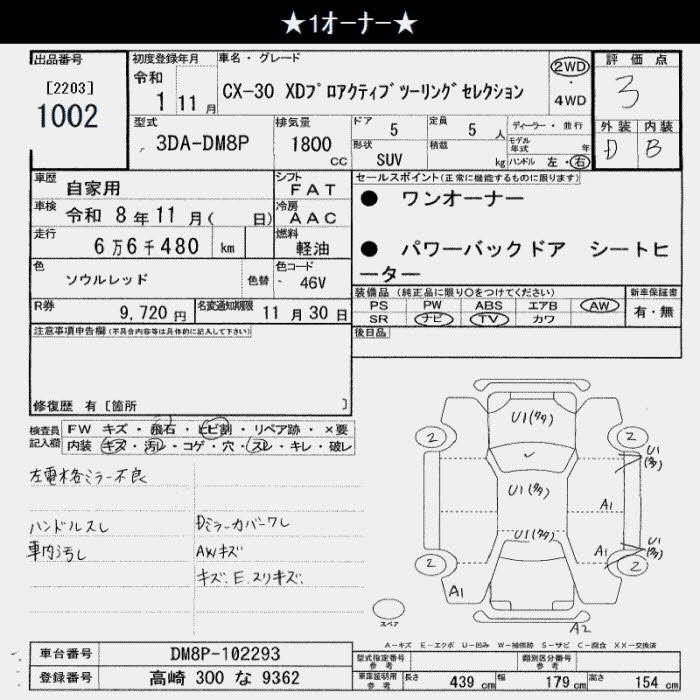 ★1オーナー★
出品番号
[2203]
1002
初度登録年月
令和
1 11 月
車名・グレード
CX-30 XDプロアクティブツーリングセレクション
2WD
・
4WD
評価点
3
外装 内装
D B
型式
3DA-DM8P
排気量
1800
CC
ドア
5
定員
5 人
形状
SUV
積載
kg
ディーラー・並行
モデル年式 年
ハンドル 左・右
車歴
自家用
シフト
FAT
車検
令和 8 年 11 月 ( 日)
冷房
AAC
走行
6万6千480 km
燃料
軽油
色
ソウルレッド
色替
色コード
- 46V
R券
9,720 円
名変通知期限
11 月 30 日
セールスポイント(正常に機能するものに限ります)
● ワンオーナー
● パワーバックドア シートヒ
ーター
装備品 (純正品に限り〇をつけてください)
PS PW ABS エアB AW
SR ナビ TV カワ
新車保証書
有・無
後日品
注意事項申告欄(不具合内容等は具体的に記入して下さい)
修復歴 有 [箇所 ]
検査員
記入欄
FW キズ・飛石・ヒビ割・リペア跡・×要
内装 キズ・汚レ・コゲ・穴・スレ・キレ・破レ
左電格ミラー不良
ハンドルスレ
車内汚し
Dミラーカバーワレ
AWキズ
キズ、E、スリキズ、
U1(タタ)
2
2
U1
(タタ)
U1(タタ)
A1
U1(タタ)
A1
U1
(タタ)
2
2
A1
A2
スペア
A-キズ E-エクボ U-凹み W-補修跡 S-サビ C-腐食 XX-交換済
車台番号
DM8P-102293
登録番号
高崎 300 な 9362
型式指定番号
参考
類別区分番号
参考
車庫証明用
参考
長さ
439 cm
幅
179 cm
高さ
154 cm